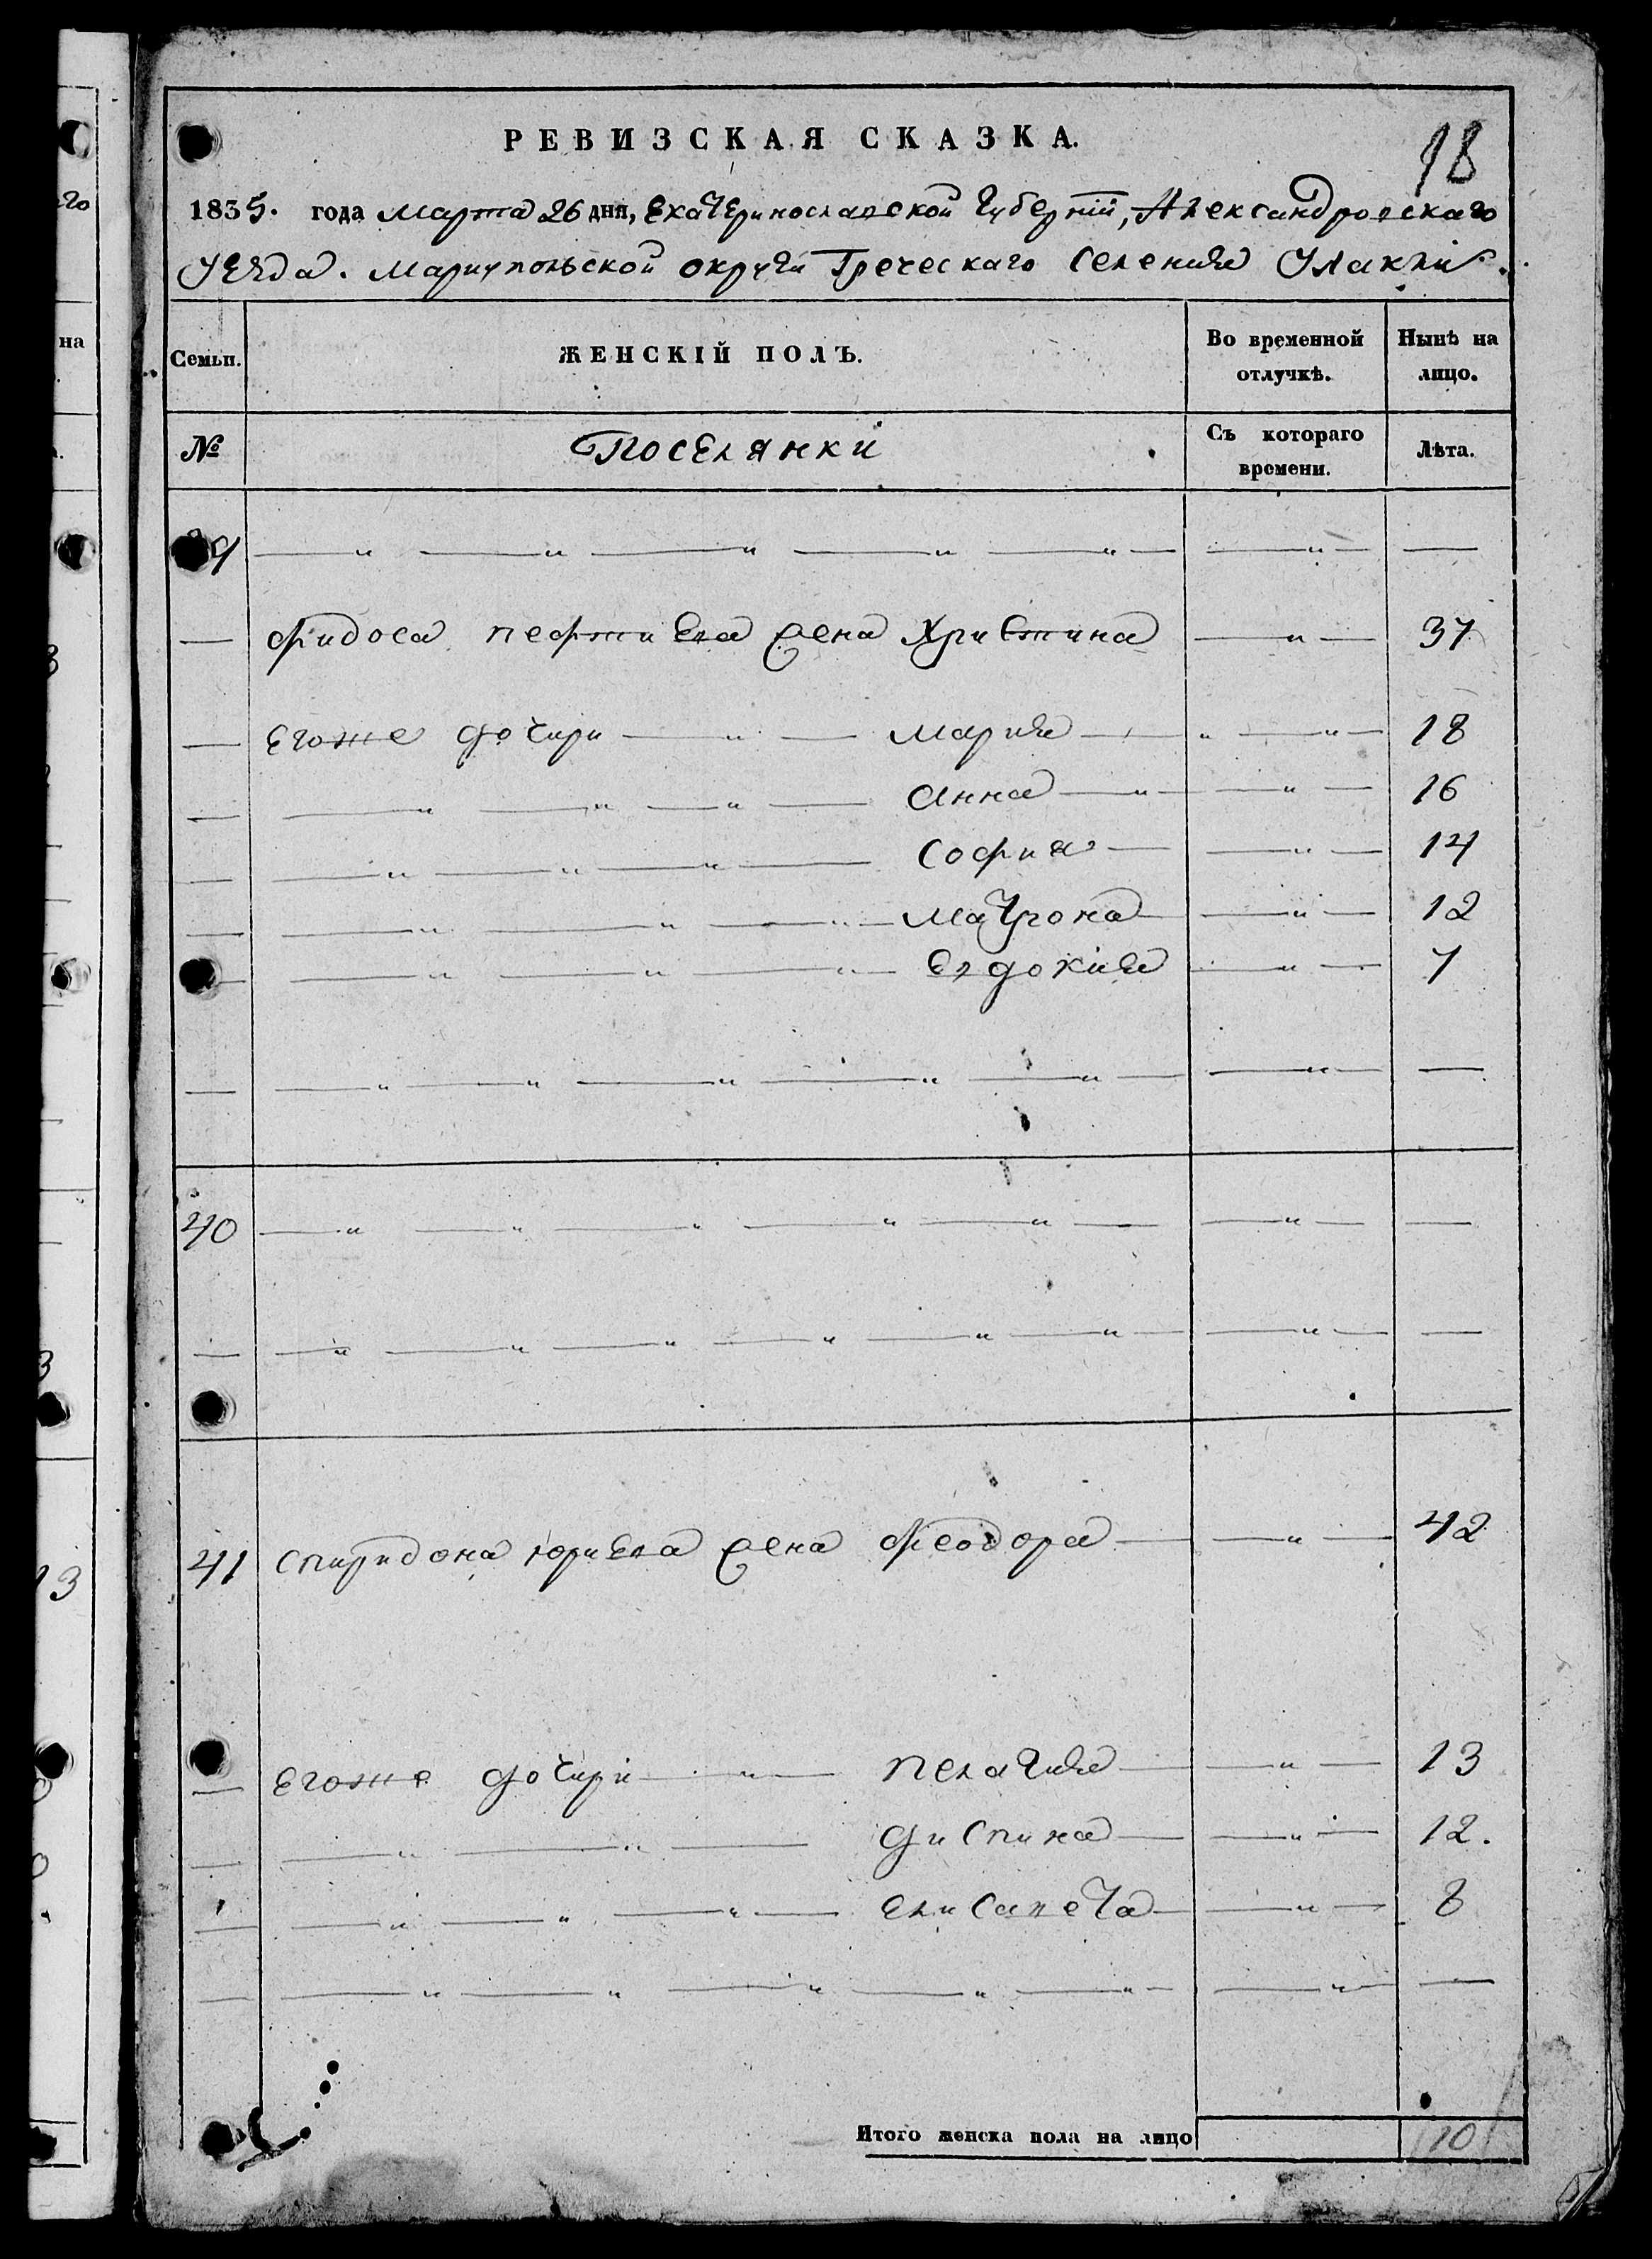 РЕВИЗСКАЯ СКАЗКА.
18
1835. года Марта 26 дня, Екатеринославской Губерніи, Александровскаго
Уезда. Мариупольской округи Греческаго Селения Улаклы.
Семьи. ЖЕНСКІЙ ПОЛЪ. Во временной отлучкѣ. Нынѣ на лицо.
№ Поселянки Съ котораго времени. Лѣта.
39 — " — " — " — " — " — — " — —
— Фидоса пефтиева жена Христина — " — 37
— Егоже дочири — " — Мария — " — " — 18
— — " — " — " — Анна — " — " — 16
— — " — " — " — София — — " — 14
— — " — " — " — Матрона — — " — 12
— — " — " — " — Евдокия — " — 7
— — " — " — " — " — " — — " — —
40 — " — " — " — " — " — — " — —
— — " — " — " — " — " — " — — " — —
41 Спиридона юриева жена Феодора — — " — 42
— Егоже дочири — " — Пелагия — — " — 13
— — " — " — Диспина — — " — 12.
— — " — " — " — Елисавета — — " — 8
— — " — " — " — " — " — — " — —
Итого женска пола на лицо 10